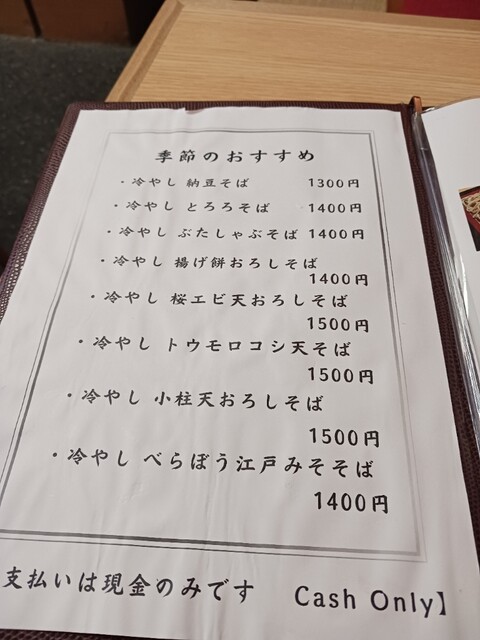 季節のおすすめ
・冷やし 納豆そば 1300円
・冷やし とろろそば 1400円
・冷やし ぶたしゃぶそば 1400円
・冷やし 揚げ餅おろしそば
1400円
・冷やし 桜エビ天おろしそば
1500円
・冷やし トウモロコシ天そば
1500円
・冷やし 小柱天おろしそば
1500円
・冷やし べらぼう江戸みそそば
1400円
支払いは現金のみです Cash Only】